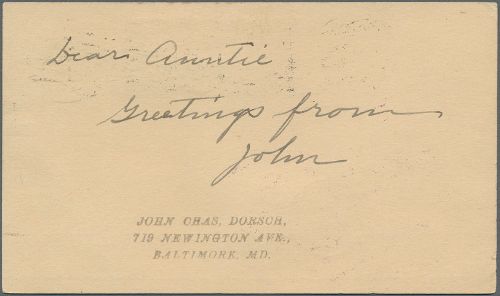 Dear Auntie
Greetings from
John
JOHN CHAS. DORSCH,
719 NEWINGTON AVE.,
BALTIMORE, MD.